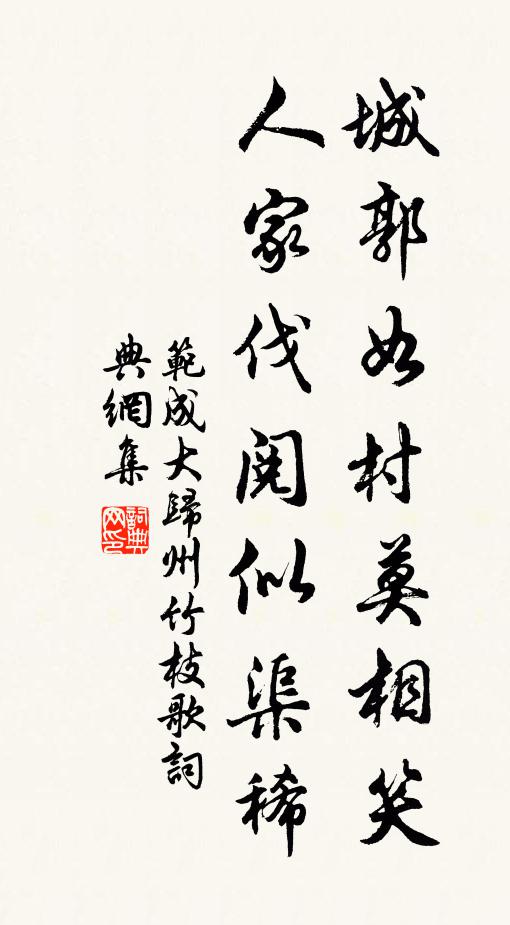 城郭如村莫相笑
人家伐阅似渠稀
範成大歸州竹枝歌詞
典網集
詞典网印